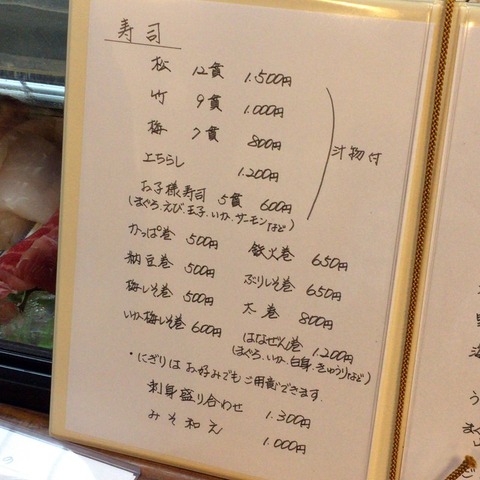 寿司
松 12貫 1.500円
竹 9貫 1.000円
梅 7貫 800円
上ちらし 1.200円
お子様寿司 5貫 600円
(まぐろ、えび、玉子、いか、サーモンなど)
汁物付
かっぱ巻 500円
納豆巻 500円
梅しそ巻 500円
いか梅しそ巻 600円
鉄火巻 650円
ぶりしそ巻 650円
太巻 800円
はなぜん巻 1.200円
(まぐろ、いか、白身、きゅうりなど)
・にぎりは お好みでもご用意できます.
刺身盛り合わせ 1.300円
みそ和え 1.000円
海
う
ご